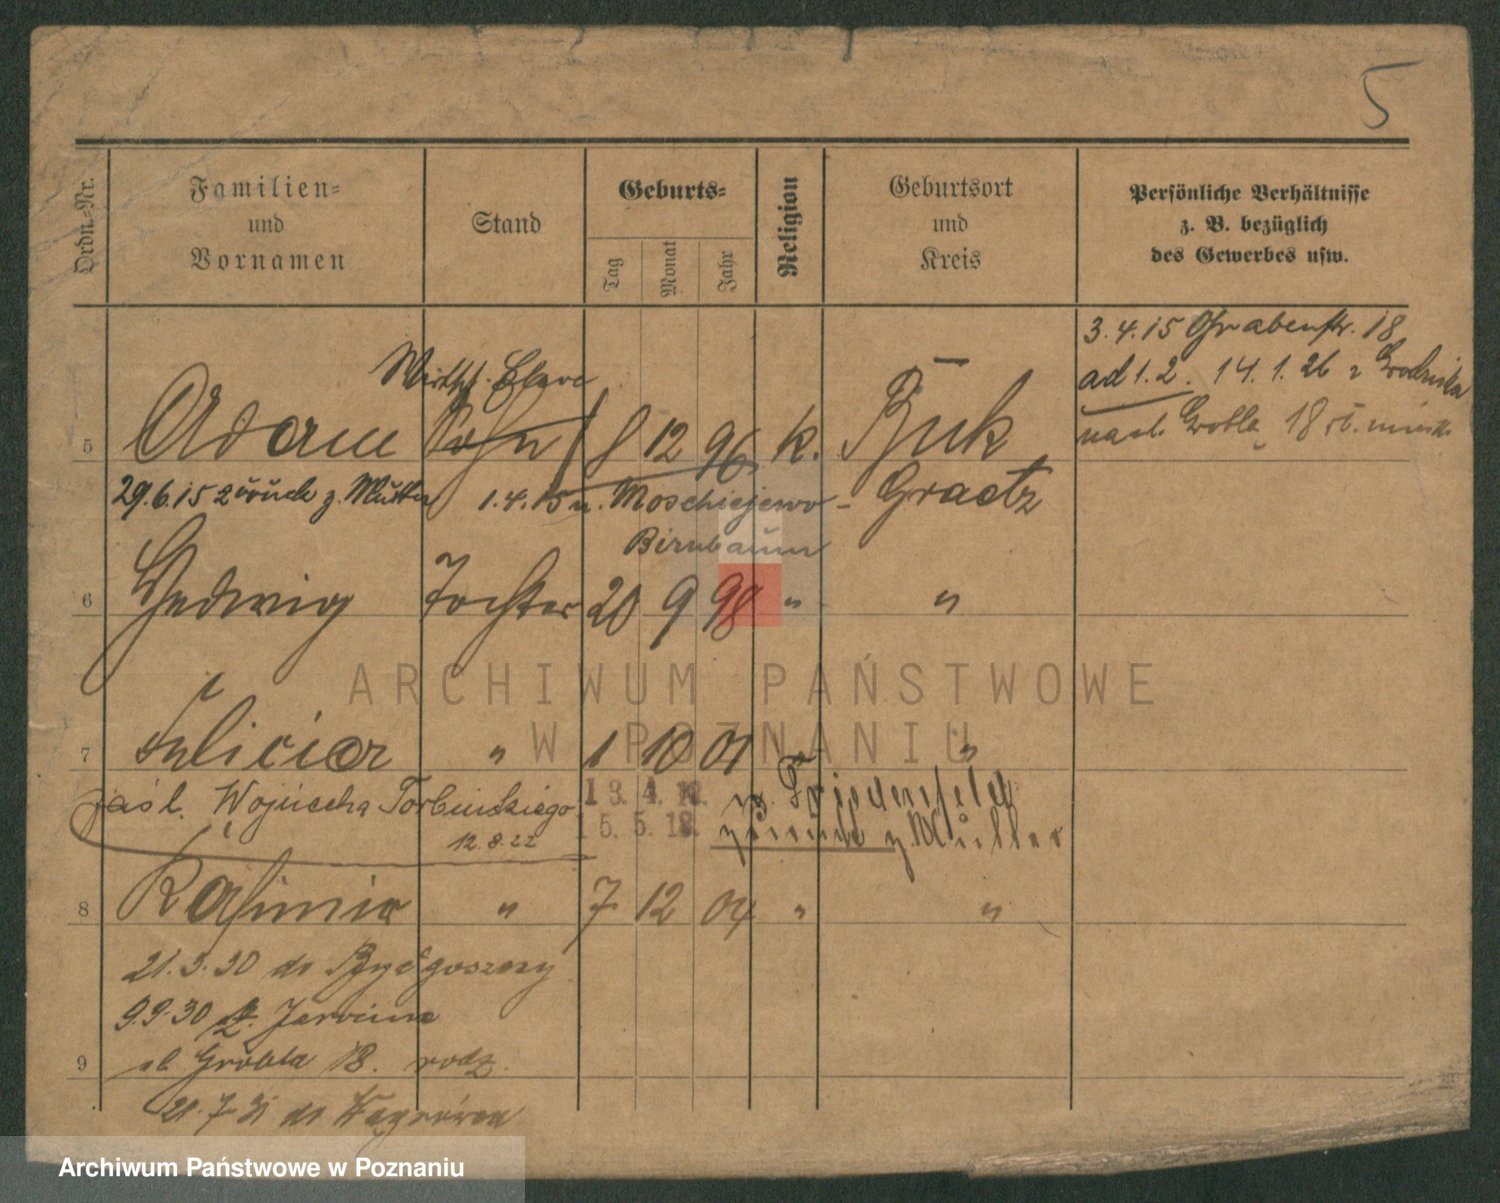 5
Ordn.-Nr.
Familien-
und
Vornamen
Stand
Geburts-
Tag
Monat
Jahr
Religion
Geburtsort
und
Kreis
Persönliche Verhältnisse
z. B. bezüglich
des Gewerbes usw.
3.4.15 Grabenstr. 18
ad 1.2. 14.1.26 z Grodziska
Grobla 18
Wirtsch. Eleve
5 Adam Sohn 8 12 96 k. Buk
29.6.15 zürück z. Mutter 1.4.15 n. Moschiejewo - Graetz
Birnbaum
6 Hedwig Tochter 20 9 98 " "
7 Felicia " 1 10 01 "
jaśl. Wojciecha Torbińskiego
12.8.22
13. 4. 18. Friedenfeld
15. 5. 18. z. Mutter
8 Kasimir " 7 12 04 " "
21.5.30 do Bydgoszczy
9.9.30 z. Jarocina
9 ul. Grobla 18. rodz.
21.7.31 do
ARCHIWUM PAŃSTWOWE
W POZNANIU
Archiwum Państwowe w Poznaniu